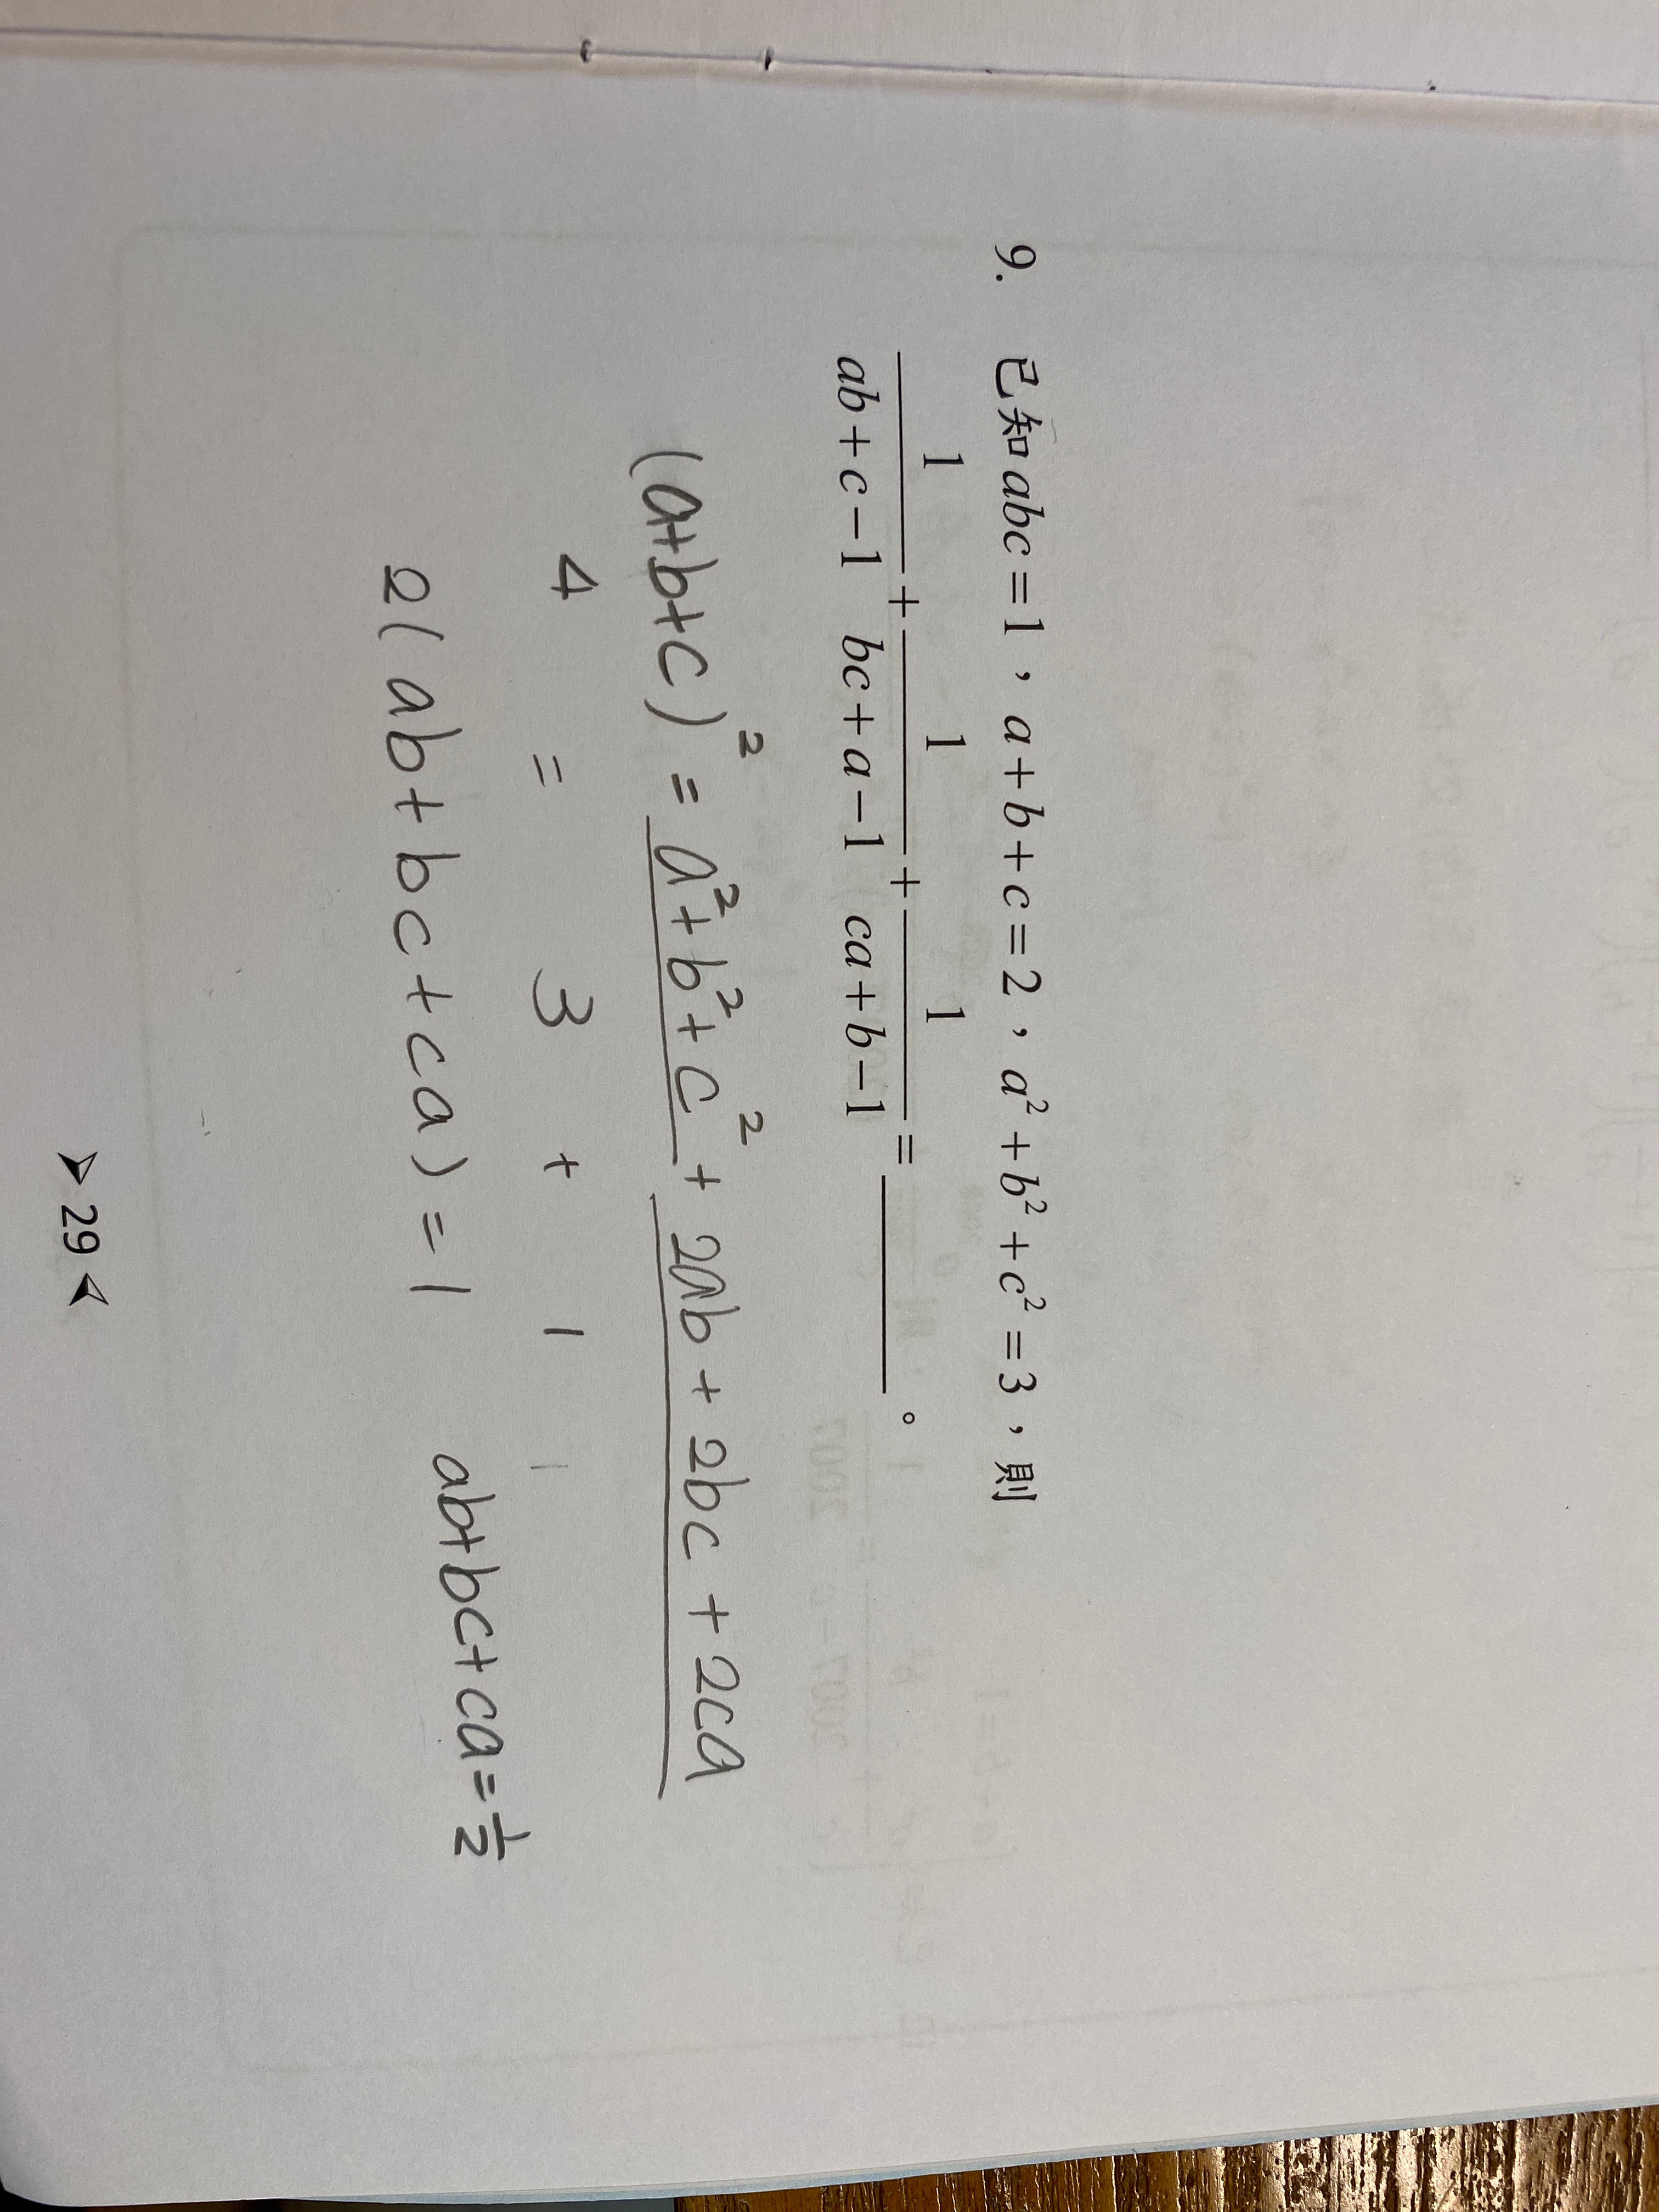 9. 已知 abc=1，a+b+c=2，a²+b²+c²=3，則
1/(ab+c−1) + 1/(bc+a−1) + 1/(ca+b−1) = ______。
(a+b+c)² = a²+b²+c² + 2ab+2bc+2ca
4 = 3 + 1
2(ab+bc+ca)=1 ab+bc+ca=1/2
➤ 29 ➤